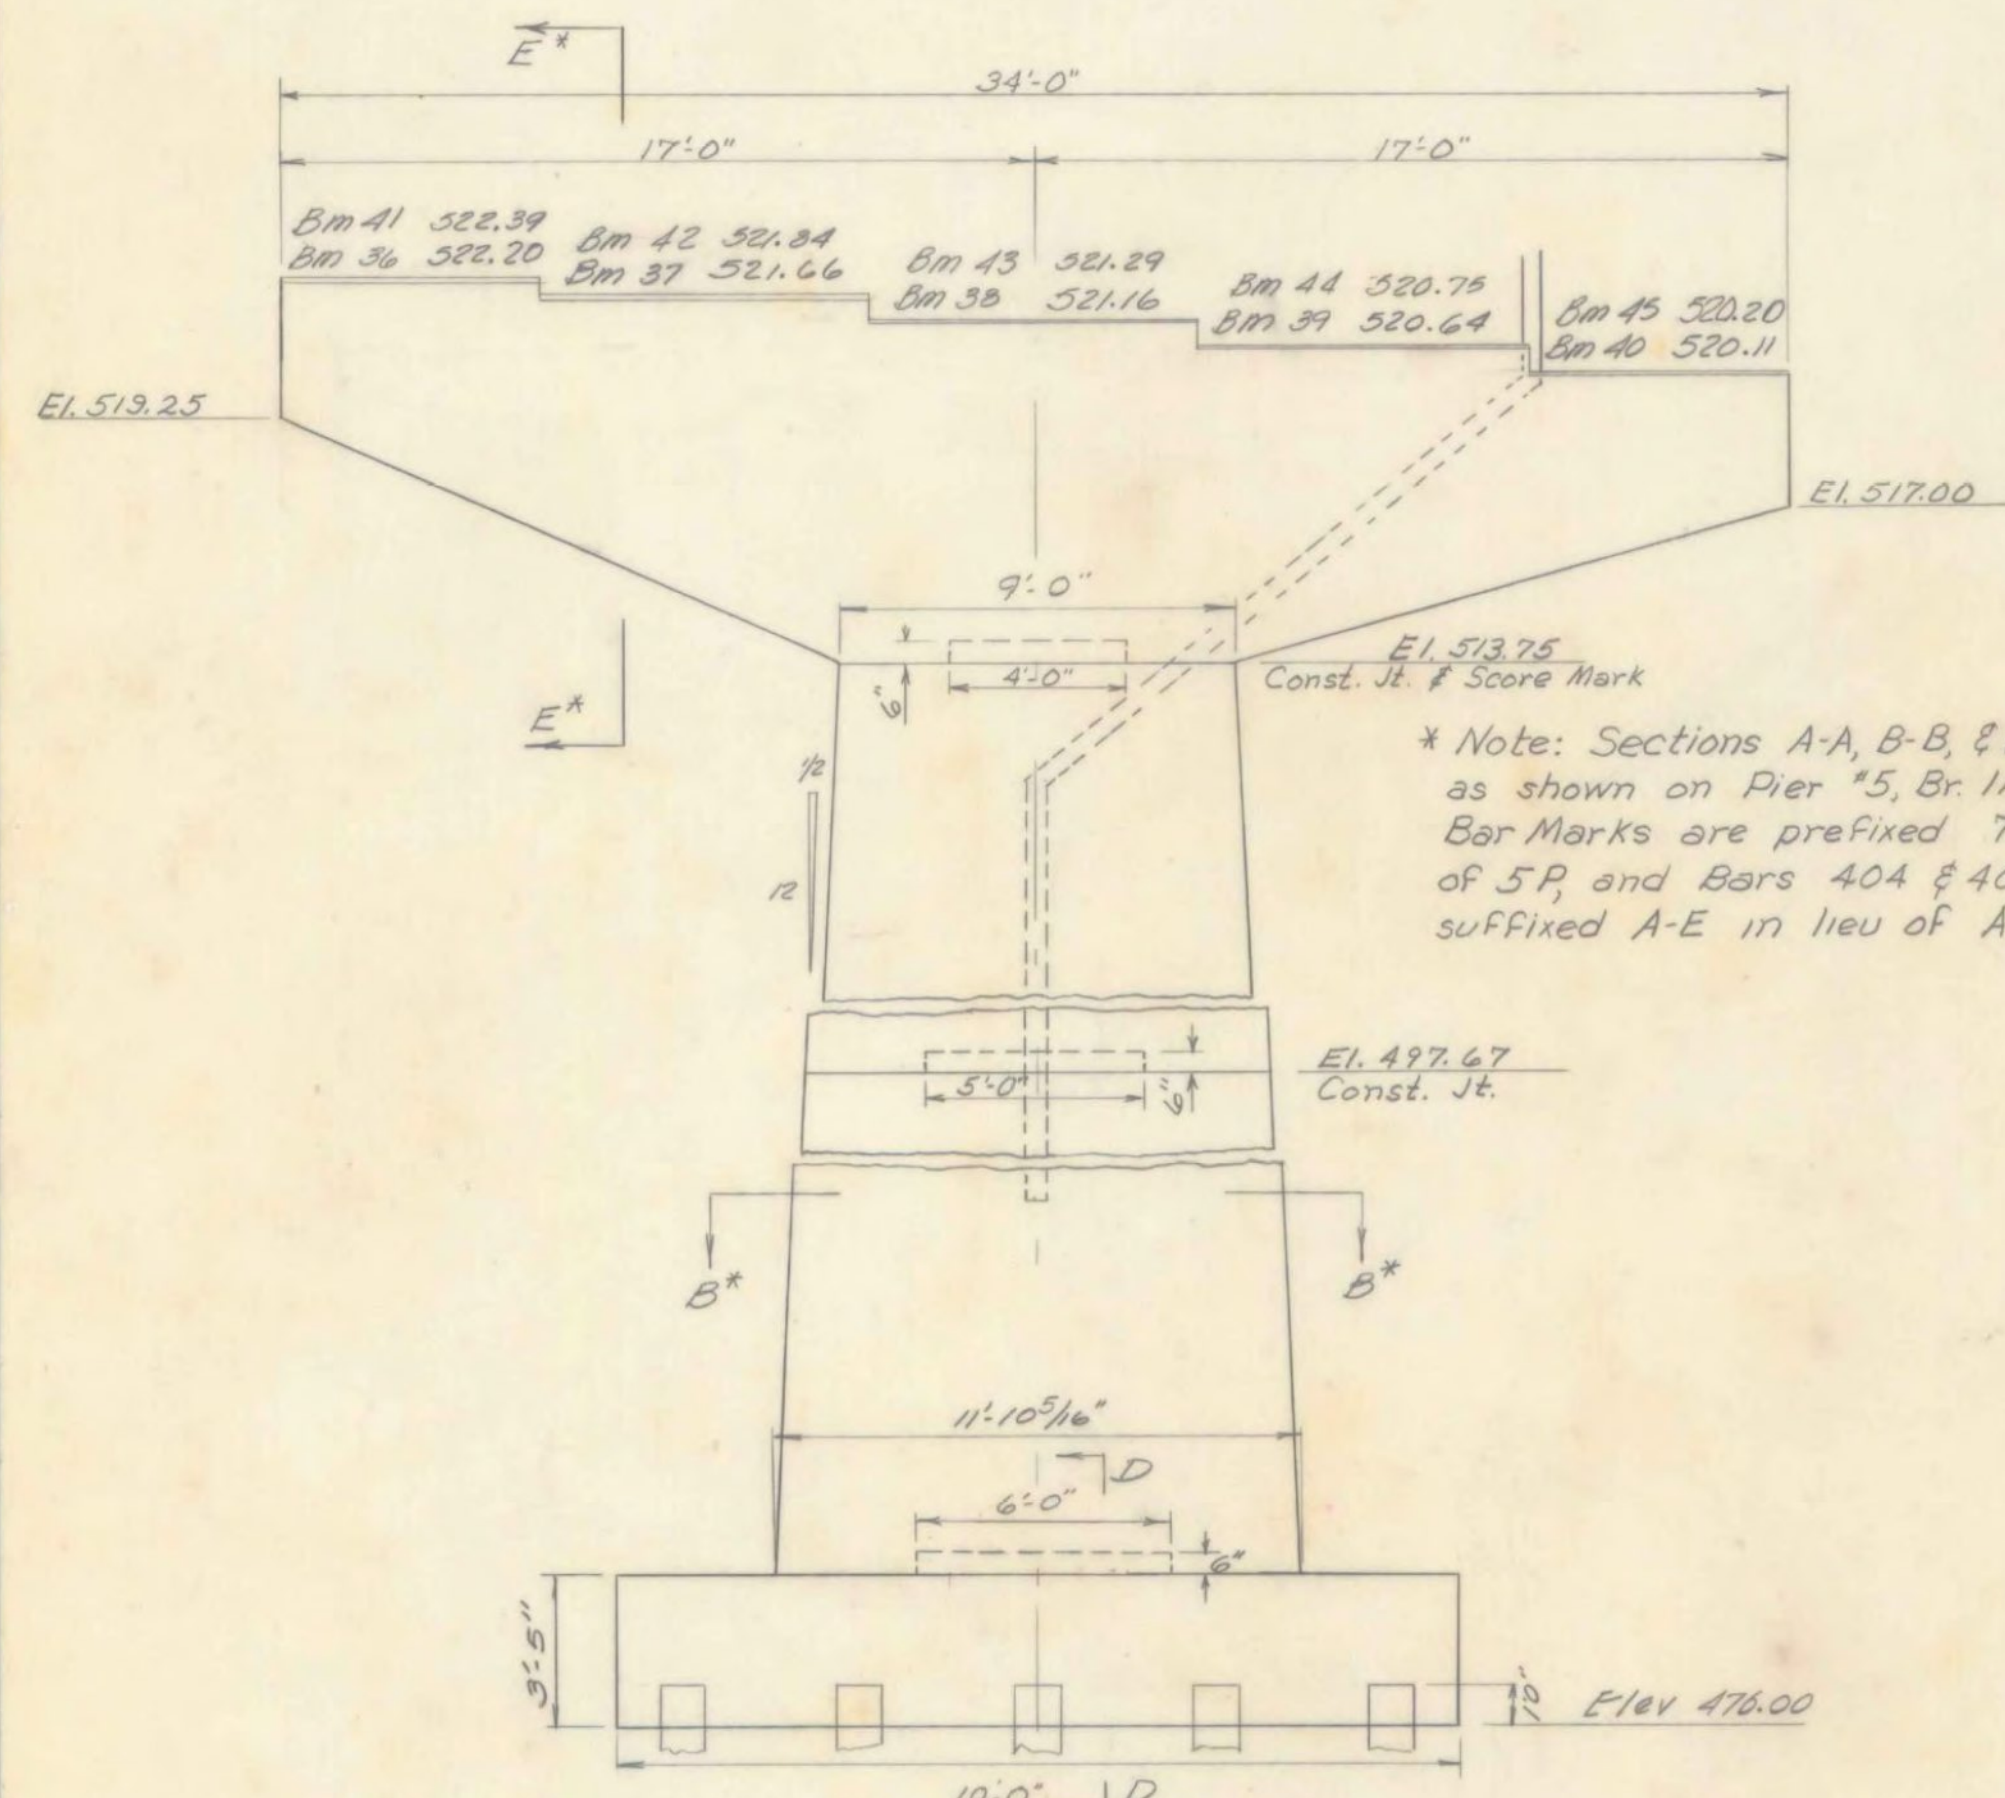 E*
34'-0"
17'-0"
17'-0"
Bm 41 522.39
Bm 36 522.20
Bm 42 521.84
Bm 37 521.66
Bm 43 521.29
Bm 38 521.16
Bm 44 520.75
Bm 39 520.64
Bm 45 520.20
Bm 40 520.11
El. 519.25
El. 517.00
9'-0"
4'-0"
6"
El. 513.75
Const. Jt. & Score Mark
E*
* Note: Sections A-A, B-B, &
as shown on Pier #5, Br.
Bar Marks are prefixed
of 5P, and Bars 404 &
suffixed A-E in lieu of
1/2
12
El. 497.67
Const. Jt.
5'-0"
6"
B*
B*
11'-10 5/16"
D
6'-0"
6"
3'-5"
1'0"
Elev 476.00